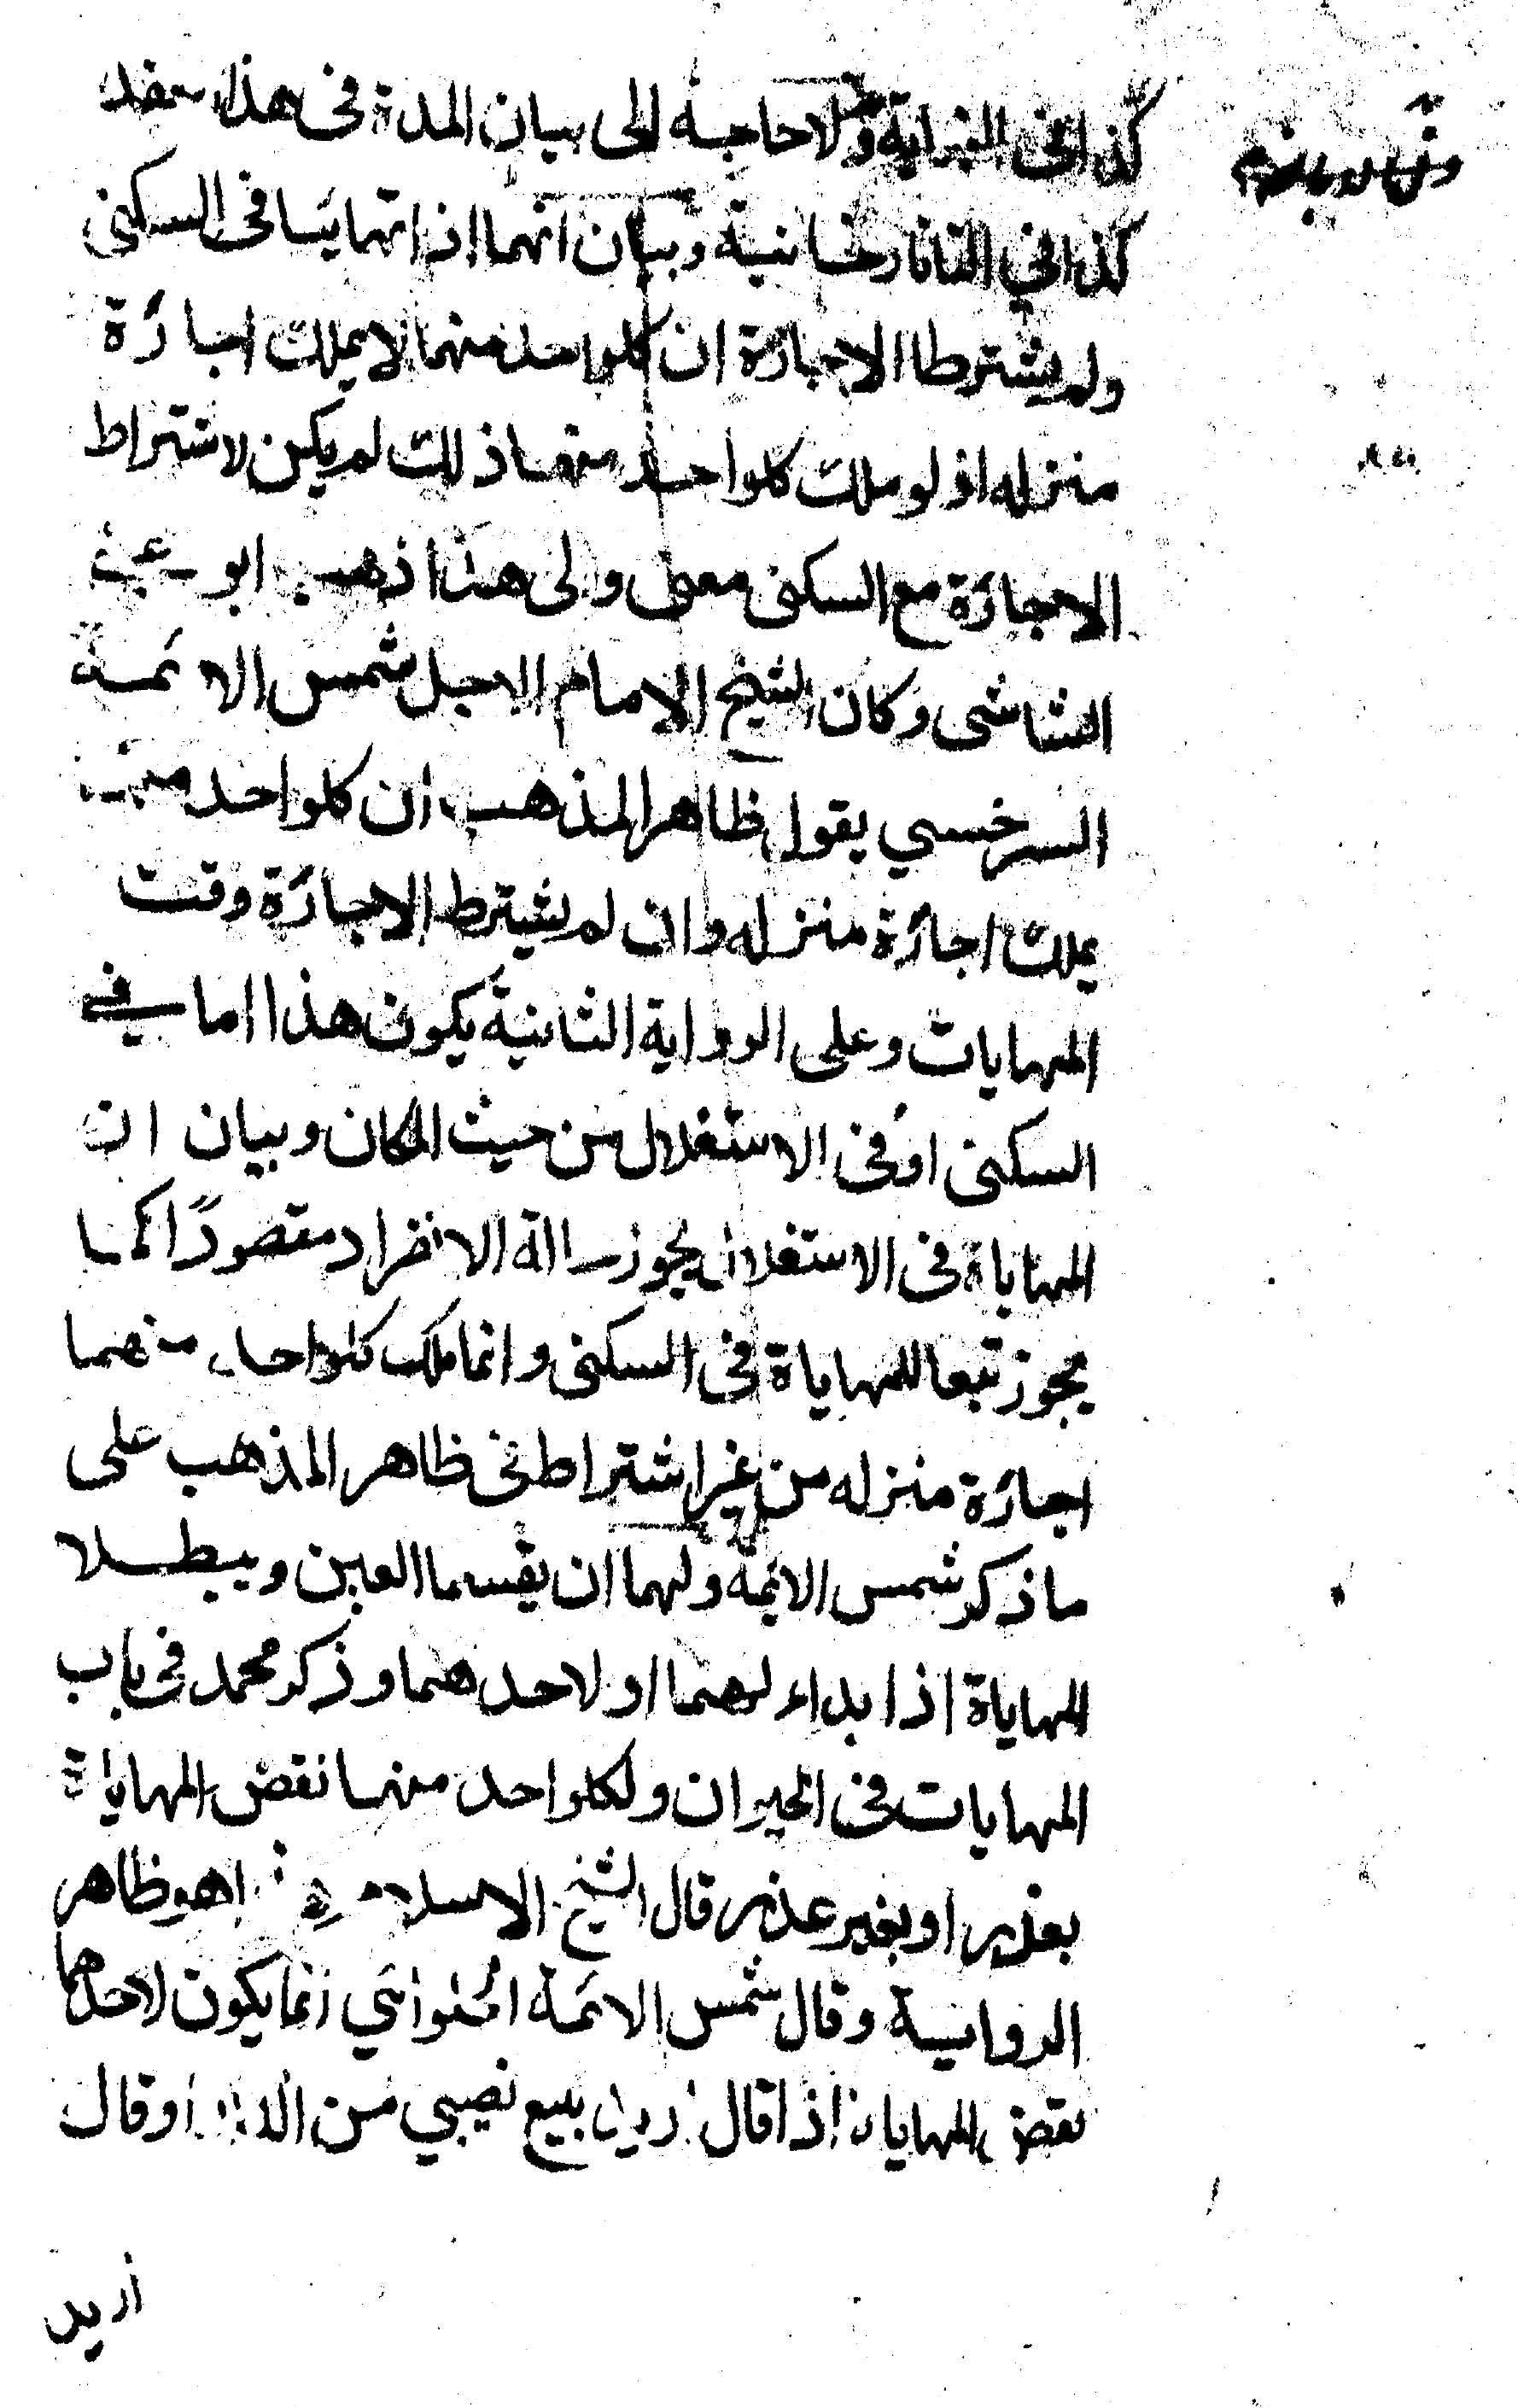 كذا في البزازية ولا حاجة الى بيان المدة في هذا العقد
كذا في التاتارخانية وبيان انهما اذا تهايئا في السكنى
ولم يشترطا الاجارة ان كلواحد منهما لا يملك اجارة
منزله اذ لو ملك كلواحد منهما ذلك لم يكن لاشتراط
الاجارة مع السكنى معنى والى هذا ذهب ابو علي
الشاشى وكان الشيخ الامام الاجل شمس الائمة
السرخسي يقول ظاهر المذهب ان كلواحد منهما
يملك اجارة منزله وان لم يشترط الاجارة وقت
المهايات وعلى الرواية الثانية يكون هذا اما في
السكنى او فى الاستغلال من حيث المكان وبيان ان
المهاياة فى الاستغلال يجوز حالة الانفراد مقصودًا كما
يجوز تبعا للمهاياة فى السكنى وانما ملك كلواحد منهما
اجارة منزله من غير اشتراط فى ظاهر المذهب على
ما ذكر شمس الائمة ولهما ان يقسما العين ويبطلا
المهاياة اذا بداء لهما او لاحدهما وذكر محمد فى باب
المهايات فى الحيوان ولكلواحد منهما نقض المهاياة
بعذر او بغير عذر قال الشيخ الاسلام هذا هو ظاهر
الرواية وقال شمس الائمة الحلوائي انما يكون لاحدهما
نقض المهاياة اذا قال اريد بيع نصيبي من الدار او قال
اريد